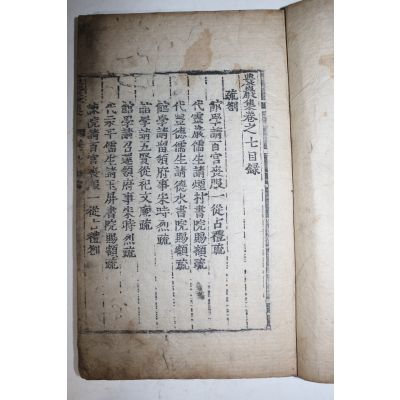 農巖集卷之七目錄
疏劄
館學請百官喪服一從古禮疏
代靈巖儒生請煙村書院賜額疏
代豐德儒生請德水書院賜額疏
館學請留領府事宋時烈疏
館學請五賢從祀文廟疏
館學請召還領府事宋時烈疏
代永平儒生請玉屏書院賜額疏
諫院請百官喪服一從古禮劄